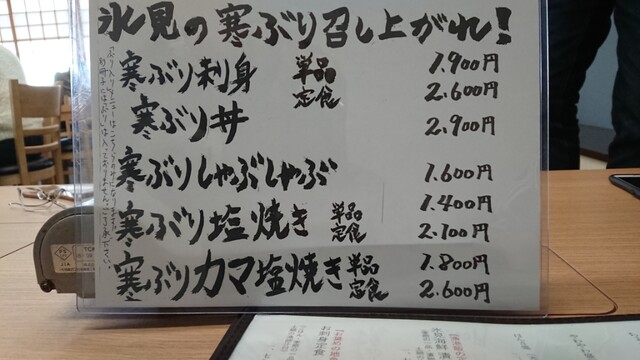 氷見の寒ぶり召し上がれ!
寒ぶり刺身 単品 1.900円
定食 2.600円
寒ぶり丼 2.900円
寒ぶりしゃぶしゃぶ 1.600円
寒ぶり塩焼き 単品 1.400円
定食 2.100円
寒ぶりカマ塩焼き 単品 1.800円
定食 2.600円
氷見海鮮
お刺身定食